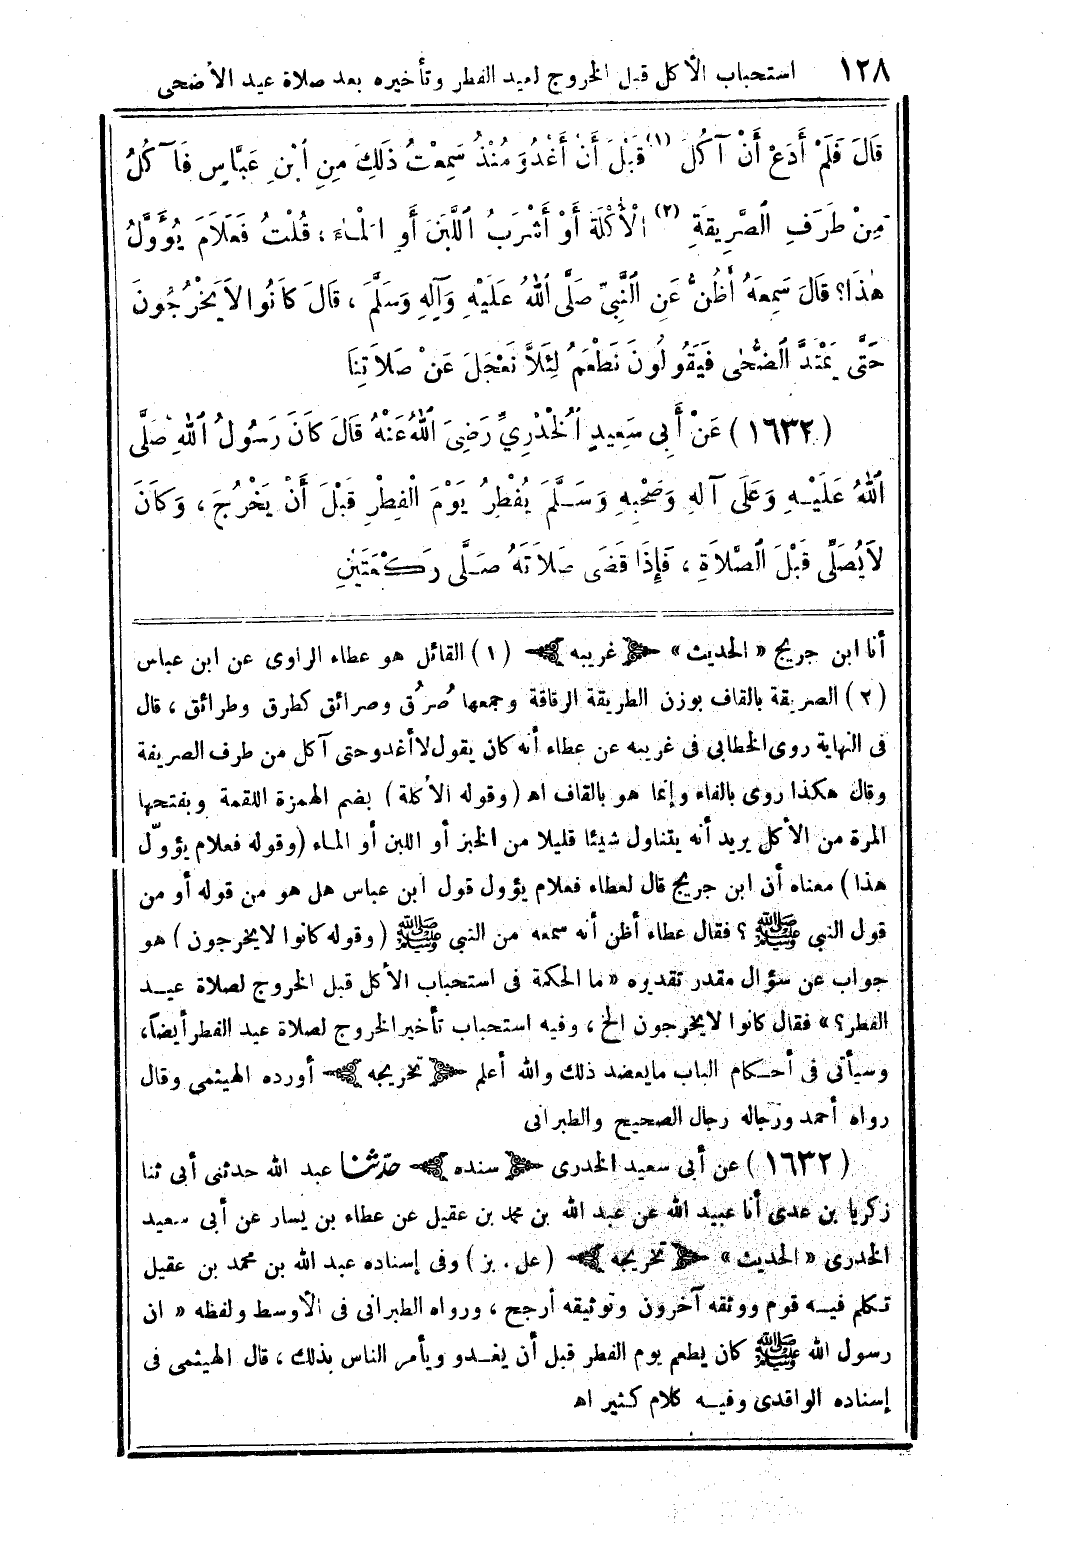 ١٢٨ استحباب الأكل قبل الخروج لعيد الفطر وتأخيره بعد صلاة عيد الأضحى
قَالَ فَلَمْ أَدَعْ أَنْ آكُلَ (١) قَبْلَ أَنْ أَغْدُوَ مُنْذُ سَمِعْتُ ذَلِكَ مِنِ ابْنِ عَبَّاسٍ فَآكُلُ
مِنْ طَرَفِ الصَّرِيقَةِ (٢) الْأُكْلَةَ أَوْ أَشْرَبُ اللَّبَنَ أَوِ الْمَاءَ ، قُلْتُ فَعَلَامَ يُؤَوَّلُ
هٰذَا؟ قَالَ سَمِعَهُ أَظُنُّ عَنِ النَّبِيِّ صَلَّى اللهُ عَلَيْهِ وَآلِهِ وَسَلَّمَ ، قَالَ كَانُوا لَا يَخْرُجُونَ
حَتَّى يَمْتَدَّ الضُّحٰى فَيَقُولُونَ نَطْعَمُ لِئَلَّا نَعْجَلَ عَنْ صَلَاتِنَا
(١٦٣٢) عَنْ أَبِي سَعِيدٍ الْخُدْرِيِّ رَضِيَ اللهُ عَنْهُ قَالَ كَانَ رَسُولُ اللهِ صَلَّى
اللهُ عَلَيْهِ وَعَلَى آلِهِ وَصَحْبِهِ وَسَلَّمَ يُفْطِرُ يَوْمَ الْفِطْرِ قَبْلَ أَنْ يَخْرُجَ ، وَكَانَ
لَا يُصَلِّي قَبْلَ الصَّلَاةِ ، فَإِذَا قَضَى صَلَاتَهُ صَلَّى رَكْعَتَيْنِ
أنا ابن جريج «الحديث» ﴿غريبه﴾ (١) القائل هو عطاء الراوى عن ابن عباس
(٢) الصريقة بالقاف بوزن الطريقة الرقاقة وجمعها صُرُق وصرائق كطرق وطرائق ، قال
فى النهاية روى الخطابى فى غريبه عن عطاء أنه كان يقول لا أغدو حتى آكل من طرف الصريفة
وقال هكذا روى بالفاء وإنما هو بالقاف اه (وقوله الأكلة) بضم الهمزة اللقمة وبفتحها
المرة من الأكل يريد أنه يتناول شيئا قليلا من الخبز أو اللبن أو الماء (وقوله فعلام يؤوّل
هذا) معناه أن ابن جريج قال لعطاء فعلام يؤول قول ابن عباس هل هو من قوله أو من
قول النبى ﷺ ؟ فقال عطاء أظن أنه سمعه من النبى ﷺ (وقوله كانوا لا يخرجون) هو
جواب عن سؤال مقدر تقديره «ما الحكمة فى استحباب الأكل قبل الخروج لصلاة عيد
الفطر؟» فقال كانوا لا يخرجون الخ ، وفيه استحباب تأخير الخروج لصلاة عيد الفطر أيضاً،
وسيأتى فى أحكام الباب ما يعضد ذلك والله أعلم ﴿تخريجه﴾ أورده الهيثمى وقال
رواه أحمد ورجاله رجال الصحيح والطبرانى
(١٦٣٢) عن أبى سعيد الخدرى ﴿سنده﴾ حدّثنا عبد الله حدثنى أبى ثنا
زكريا بن عدى أنا عبيد الله عن عبد الله بن محمد بن عقيل عن عطاء بن يسار عن أبى سعيد
الخدرى «الحديث» ﴿تخريجه﴾ (عل . بز) وفى إسناده عبد الله بن محمد بن عقيل
تكلم فيه قوم ووثقه آخرون وتوثيقه أرجح ، ورواه الطبرانى فى الأوسط ولفظه « ان
رسول الله ﷺ كان يطعم يوم الفطر قبل أن يغدو ويأمر الناس بذلك ، قال الهيثمى فى
إسناده الواقدى وفيه كلام كثير اه